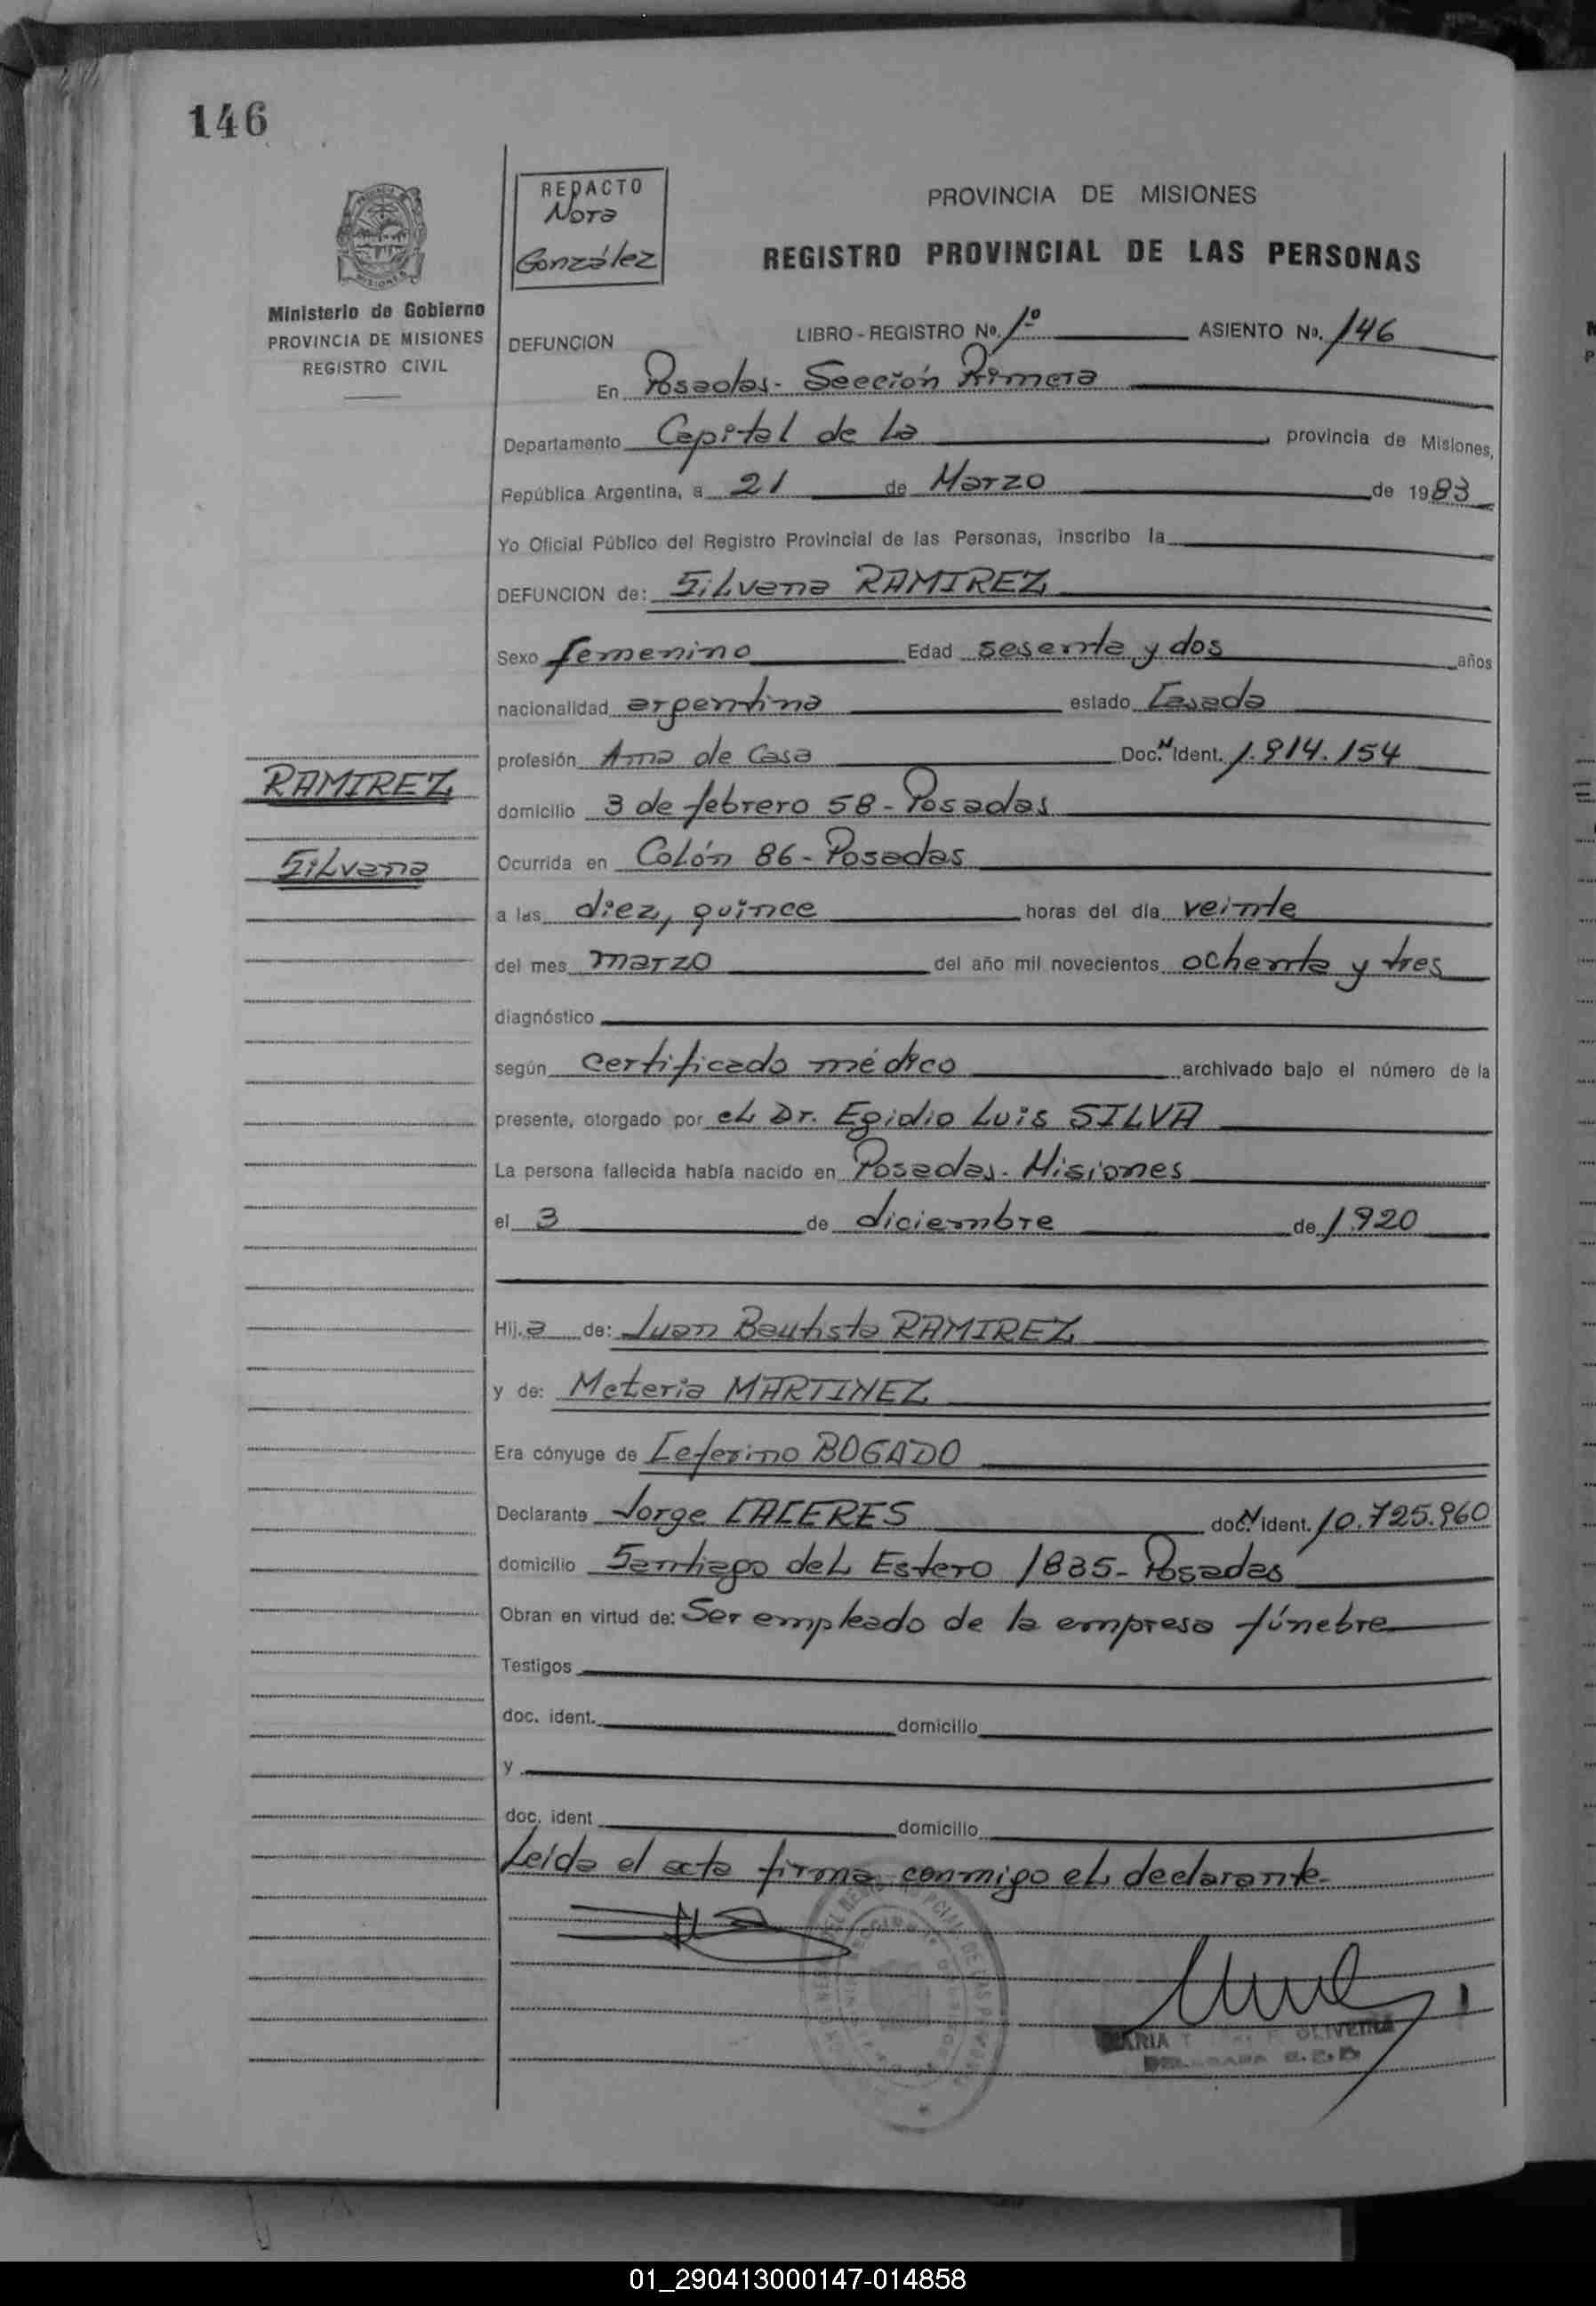 146
REDACTO
Nora
González
PROVINCIA DE MISIONES
REGISTRO PROVINCIAL DE LAS PERSONAS
Ministerio de Gobierno
PROVINCIA DE MISIONES
REGISTRO CIVIL
DEFUNCION LIBRO-REGISTRO No. 1º ASIENTO No. 146
En Posadas- Sección Primera
Departamento Capital de La , provincia de Misiones,
República Argentina, a 21 de Marzo de 1983
Yo Oficial Público del Registro Provincial de las Personas, inscribo la
DEFUNCION de: Silvana RAMIREZ
Sexo femenino Edad sesenta y dos años
nacionalidad argentina estado Casada
profesión Ama de Casa Doc. N Ident. 1.914.154
RAMIREZ
domicilio 3 de febrero 58- Posadas
Silvana
Ocurrida en Colón 86- Posadas
a las diez, quince horas del día veinte
del mes marzo del año mil novecientos ochenta y tres
diagnóstico
según certificado médico archivado bajo el número de la
presente, otorgado por el Dr. Egidio Luis SILVA
La persona fallecida había nacido en Posadas- Misiones
el 3 de diciembre de 1.920
Hij.a de: Juan Bautista RAMIREZ
y de: Meteria MARTINEZ
Era cónyuge de Ceferino BOGADO
Declarante Jorge CACERES doc. N ident. 10.725.960
domicilio Santiago del Estero 1835- Posadas
Obran en virtud de: Ser empleado de la empresa fúnebre
Testigos
doc. ident. domicilio
y
doc. ident domicilio
Leída el acta firma conmigo el declarante-
MARIA OLIVEIRA
01_290413000147-014858